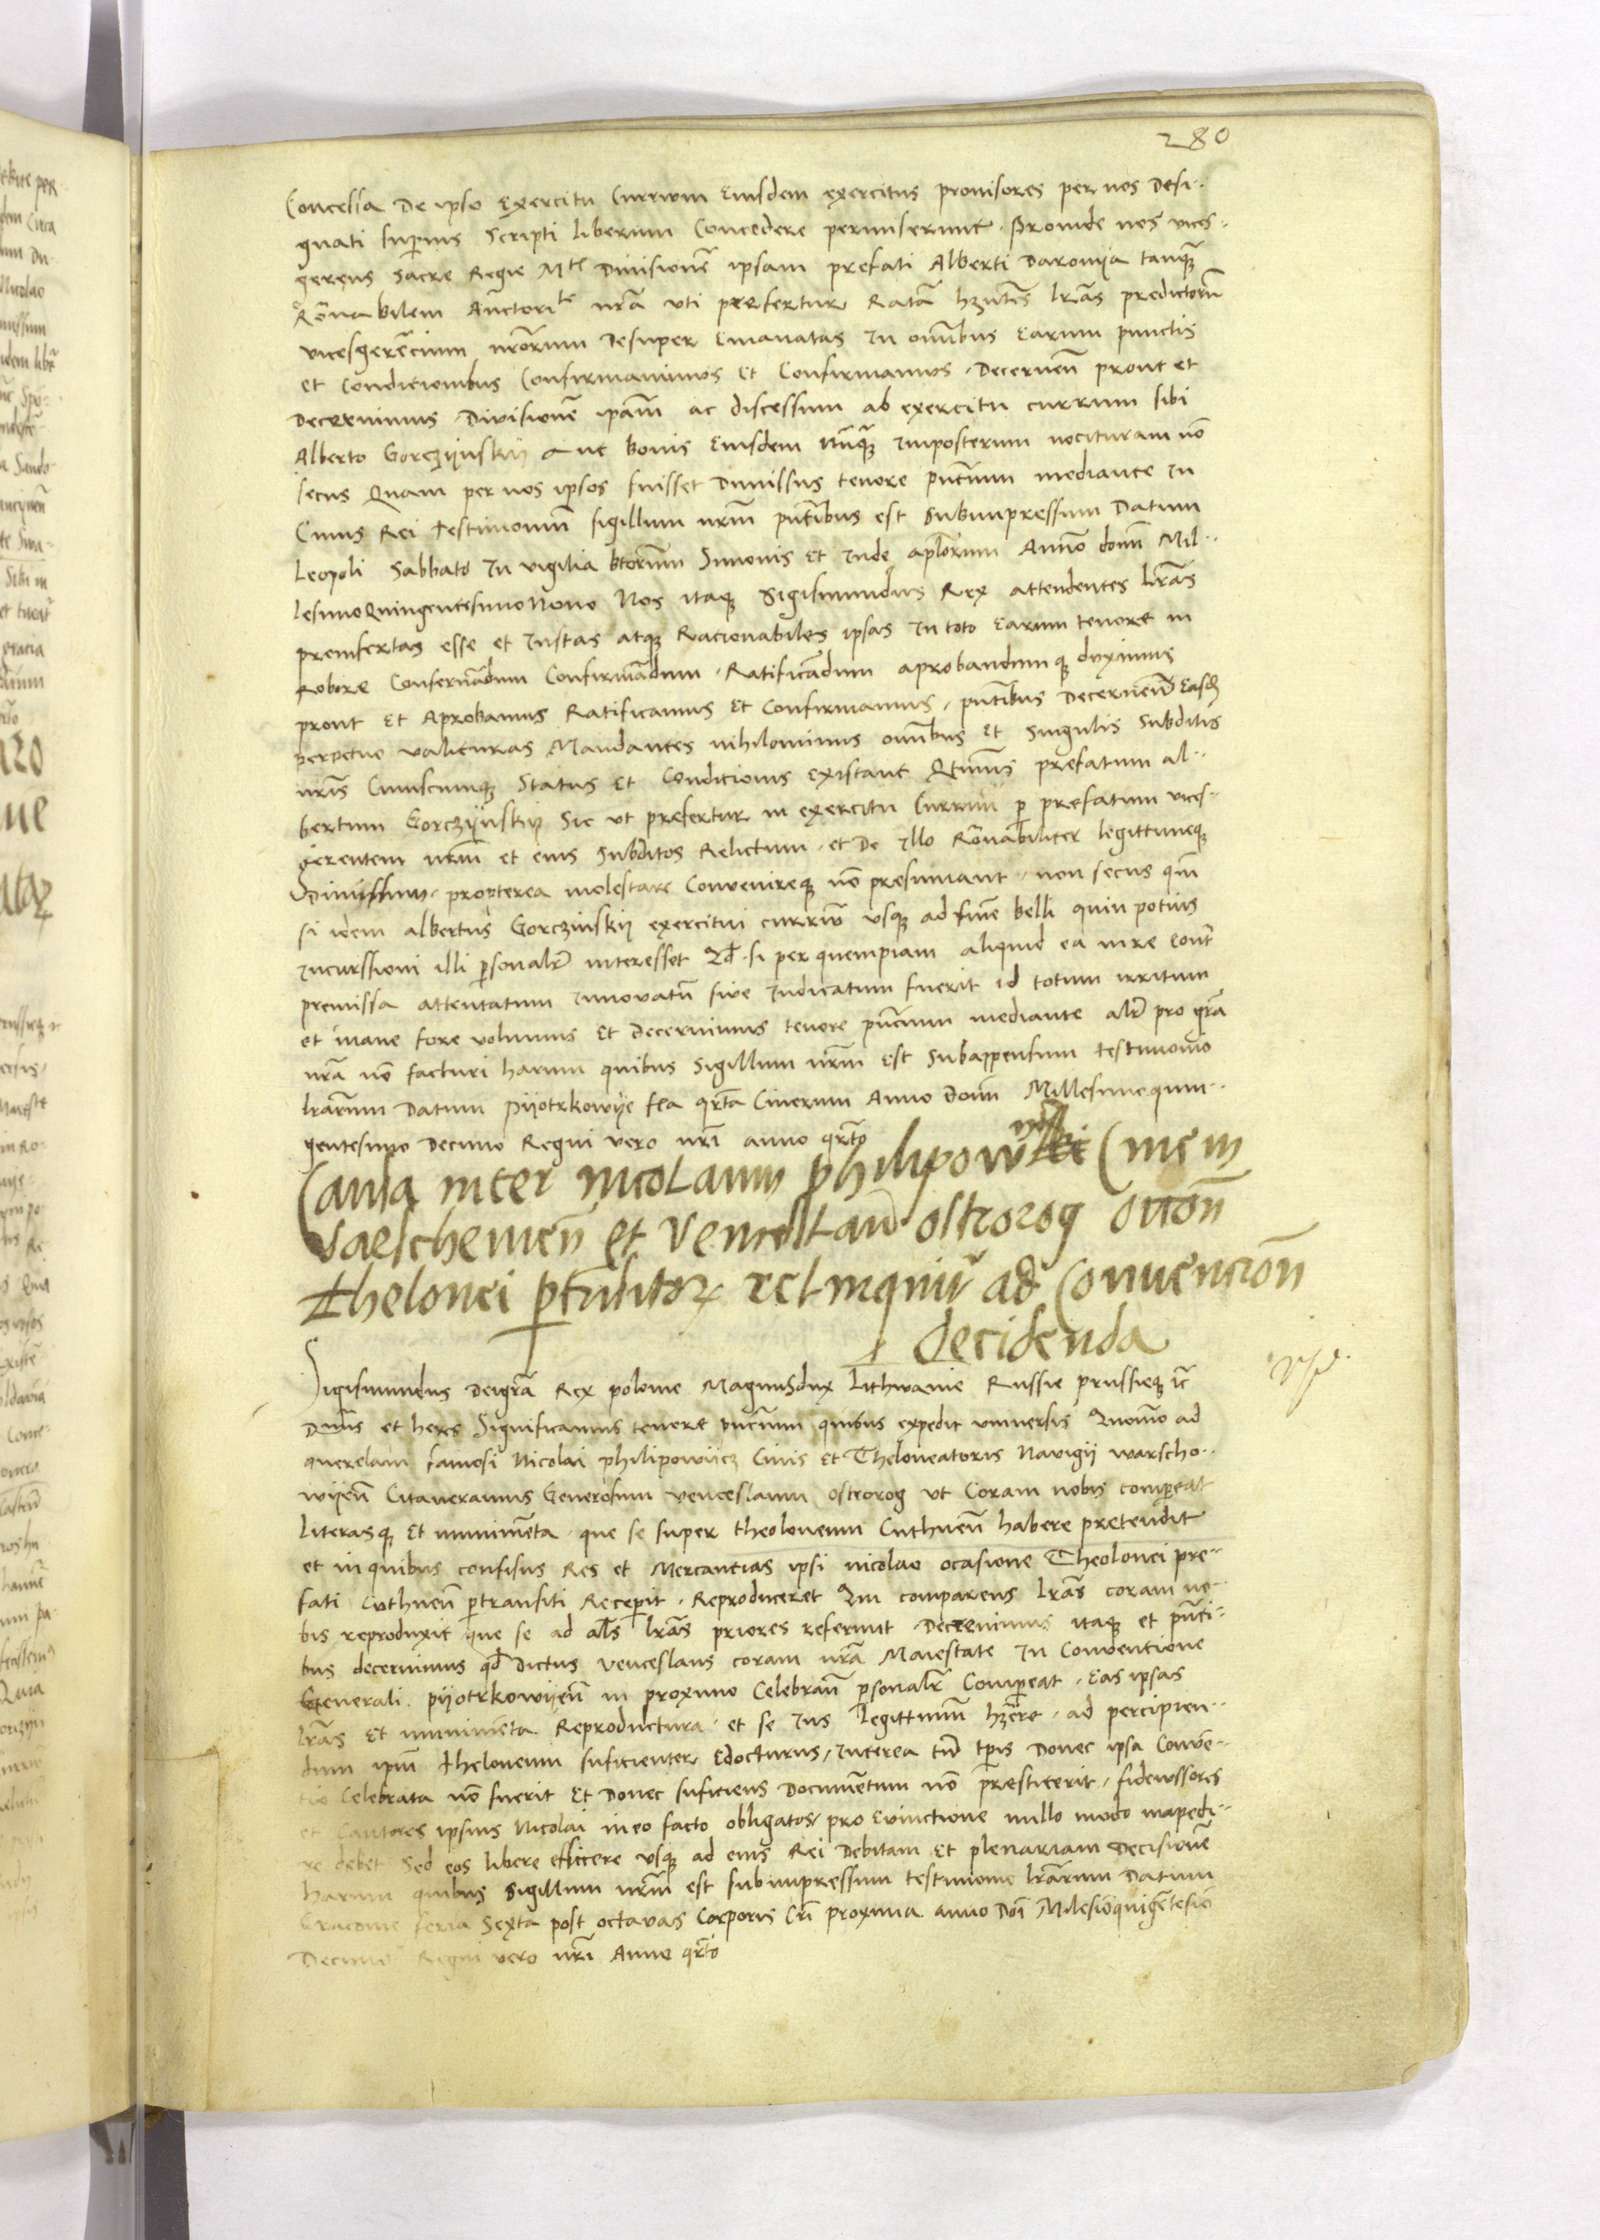 280
Concessa De ipso Exercitu Curruum Eiusdem exercitus provisores per nos Desi-
gnati superius Scripti liberum Concedere permiserunt. Proinde nos vices-
gerens Sacre Regie Mtis Divisionẽ ipsam prefati Alberti Daronija tanq̃
Rõnabilem Auctorite nr̃a uti prefertur Ratã hñtes lr̃as predictorũ
vicesgerẽcium nr̃orum Desuper Emanatas In om̃ibus Earum punctis
et Condicionibus Confirmavimus Et Confirmamus. Decernen̄ prout et
Decernimus Divisionẽ ip̃am ac discessum ab exercitu currum sibi
Alberto Gorczijnskij aut bonis Eiusdem nũq̃ Imposterum nocituram nõ
secus Quam per nos ipsos fuisset Dimissus tenore pñcium mediante In
Cuius Rei Testimoniũ sigillum nr̃m pñtibus est Subimpressum Datum
Leopoli Sabbato In vigilia bt̃orum Simonis Et Iude apl̃orum Anno domĩ Mil-
lesimo Quingentesimo Nono Nos itaq̃ Sigismundus Rex attendentes Lr̃as
preinsertas esse et Iustas atq̃ Racionabiles ipsas In toto Earum tenore in
Robore Conservãdum Confirmãdum. Ratificãdum aprobandumq̃ duximus
prout Et Aprobamus Ratificamus Et Confirmamus, pñtibus Decernen̄ Easdẽ
perpetue valituras Mandantes nihilominus om̃ibus Et Singulis Subditis
nr̃is Cuiuscumq̃ Status Et Condicionis existant Q̃tinus prefatum al-
bertum Gorczijnskij Sic ut prefertur in exercitu Curruũ p prefatum vices-
gerentem nr̃m et eius Subditos Relictum. et De Illo Rõnabiliter legittimeq̃
Dimissum. propterea molestare Convenireq̃ nõ presumant. non secus q̃m
si idem albertus Gorczinskij exercitui curruũ usq̃ ad finẽ belli quin potius
Incurssioni illi p̃sonalr̃ interesset Qd̃. si per quempiam aliquid ea in re cont̃
premissa attentatum Innovatũ sive Iudicatum fuerit id totum irritum
et inane fore volumus Et Decernimus tenore pñcium mediante alr̃ pro gr̃a
nr̃a nõ facturi harum quibus Sigillum nr̃m Est Subappensum testimonio
lr̃arum Datum Pijotrkowije fe̱a qr̃ta Cinerum Anno Domĩ Millesimoquin-
gentesimo Decimo Regni vero nr̃i anno qr̃to
Causa inter nicolaum philipowicz Civem
varschevien̄ et Venceslaũ ostrorog occõn
thelonei p̃transitorꝝ relinquitur ad Convencion̄
decidenda
Sigismundus Dei gr̃a Rex polonie Magnusdux Lithwanie Russie prussieq̃ ec̃
Dñus et heres Significamus tenore pñcium quibus expedit universis Quomo ad
querelam famosi Nicolai philipowijcz Civis Et Theloneatoris Navigij warscho-
wijen̄ Citaveramus Generosum venceslaum ostrorog ut Coram nobis compareat
literasq̃ Et munimẽta. que se super theoloneum Cuthnen̄ habere pretendit
et in quibus confisus Res et Mercantias ipsi nicolao ocasione Theolonei pre-
fati Cuthnen̄ p̃transiti Recepit. Reproduceret Qui comparens lr̃as coram no-
bis reproduxit que se ad al̃s lr̃as priores referunt. Decrevimus itaq̃ et pñti-
bus decernimus qd̃ Dictus venceslaus coram nr̃a Maiestate In Conventione
Generali. Pijotrkowijen̄ in proximo Celebran̄ p̃sonalr̃ Compareat. Eas ipsas
lr̃as Et munimẽta. Reproductura. et se Ius Legittimũ hr̃e. ad percipien-
dum ip̃m theloneum suficienter Edocturus, Interea tñ tp̃is Donec ipsa Convẽ-
tio Celebrata nõ fuerit Et Donec suficiens Documẽtum nõ prestiterit, fideiussores
et Cautores ipsius Nicolai in eo facto obligatos, pro Evinctione nullo modo impedi-
re debet Sed eos libere efficere usq̃ ad eius Rei Debitam Et plenariam Decisionẽ
harum quibus Sigillum nr̃m est subimpressum testimonio lr̃arum Datum
Cracovie feria Sexta post octavas Corporis Cr̃i proxima anno Doĩ Milesiõquigẽtesiõ
Decimo Regni vero nr̃i Anno qr̃to